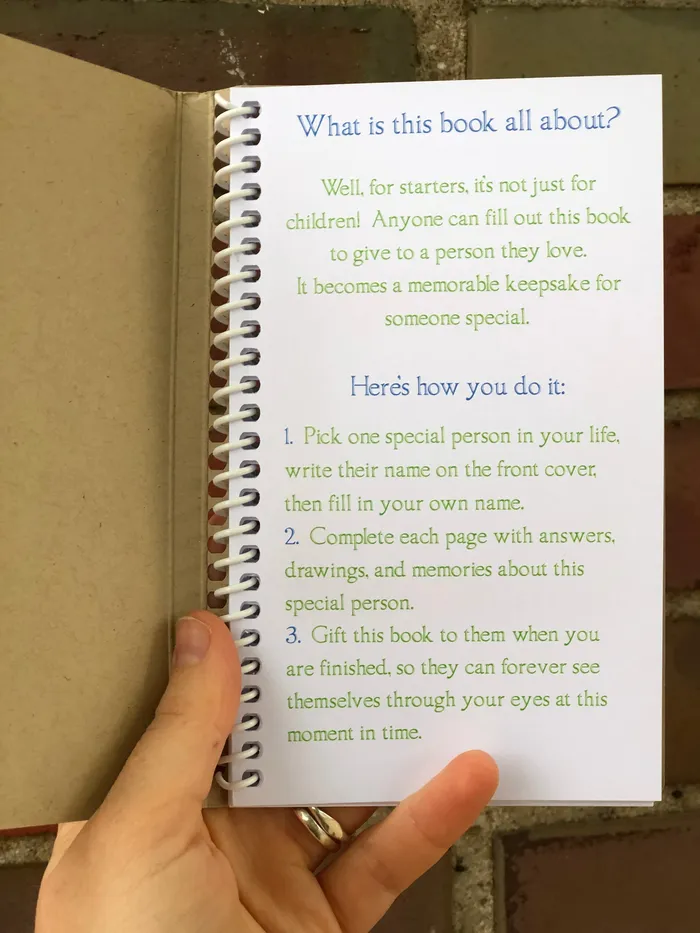 What is this book all about?
Well, for starters, it's not just for
children! Anyone can fill out this book
to give to a person they love.
It becomes a memorable keepsake for
someone special.
Here's how you do it:
1. Pick one special person in your life,
write their name on the front cover,
then fill in your own name.
2. Complete each page with answers,
drawings, and memories about this
special person.
3. Gift this book to them when you
are finished, so they can forever see
themselves through your eyes at this
moment in time.